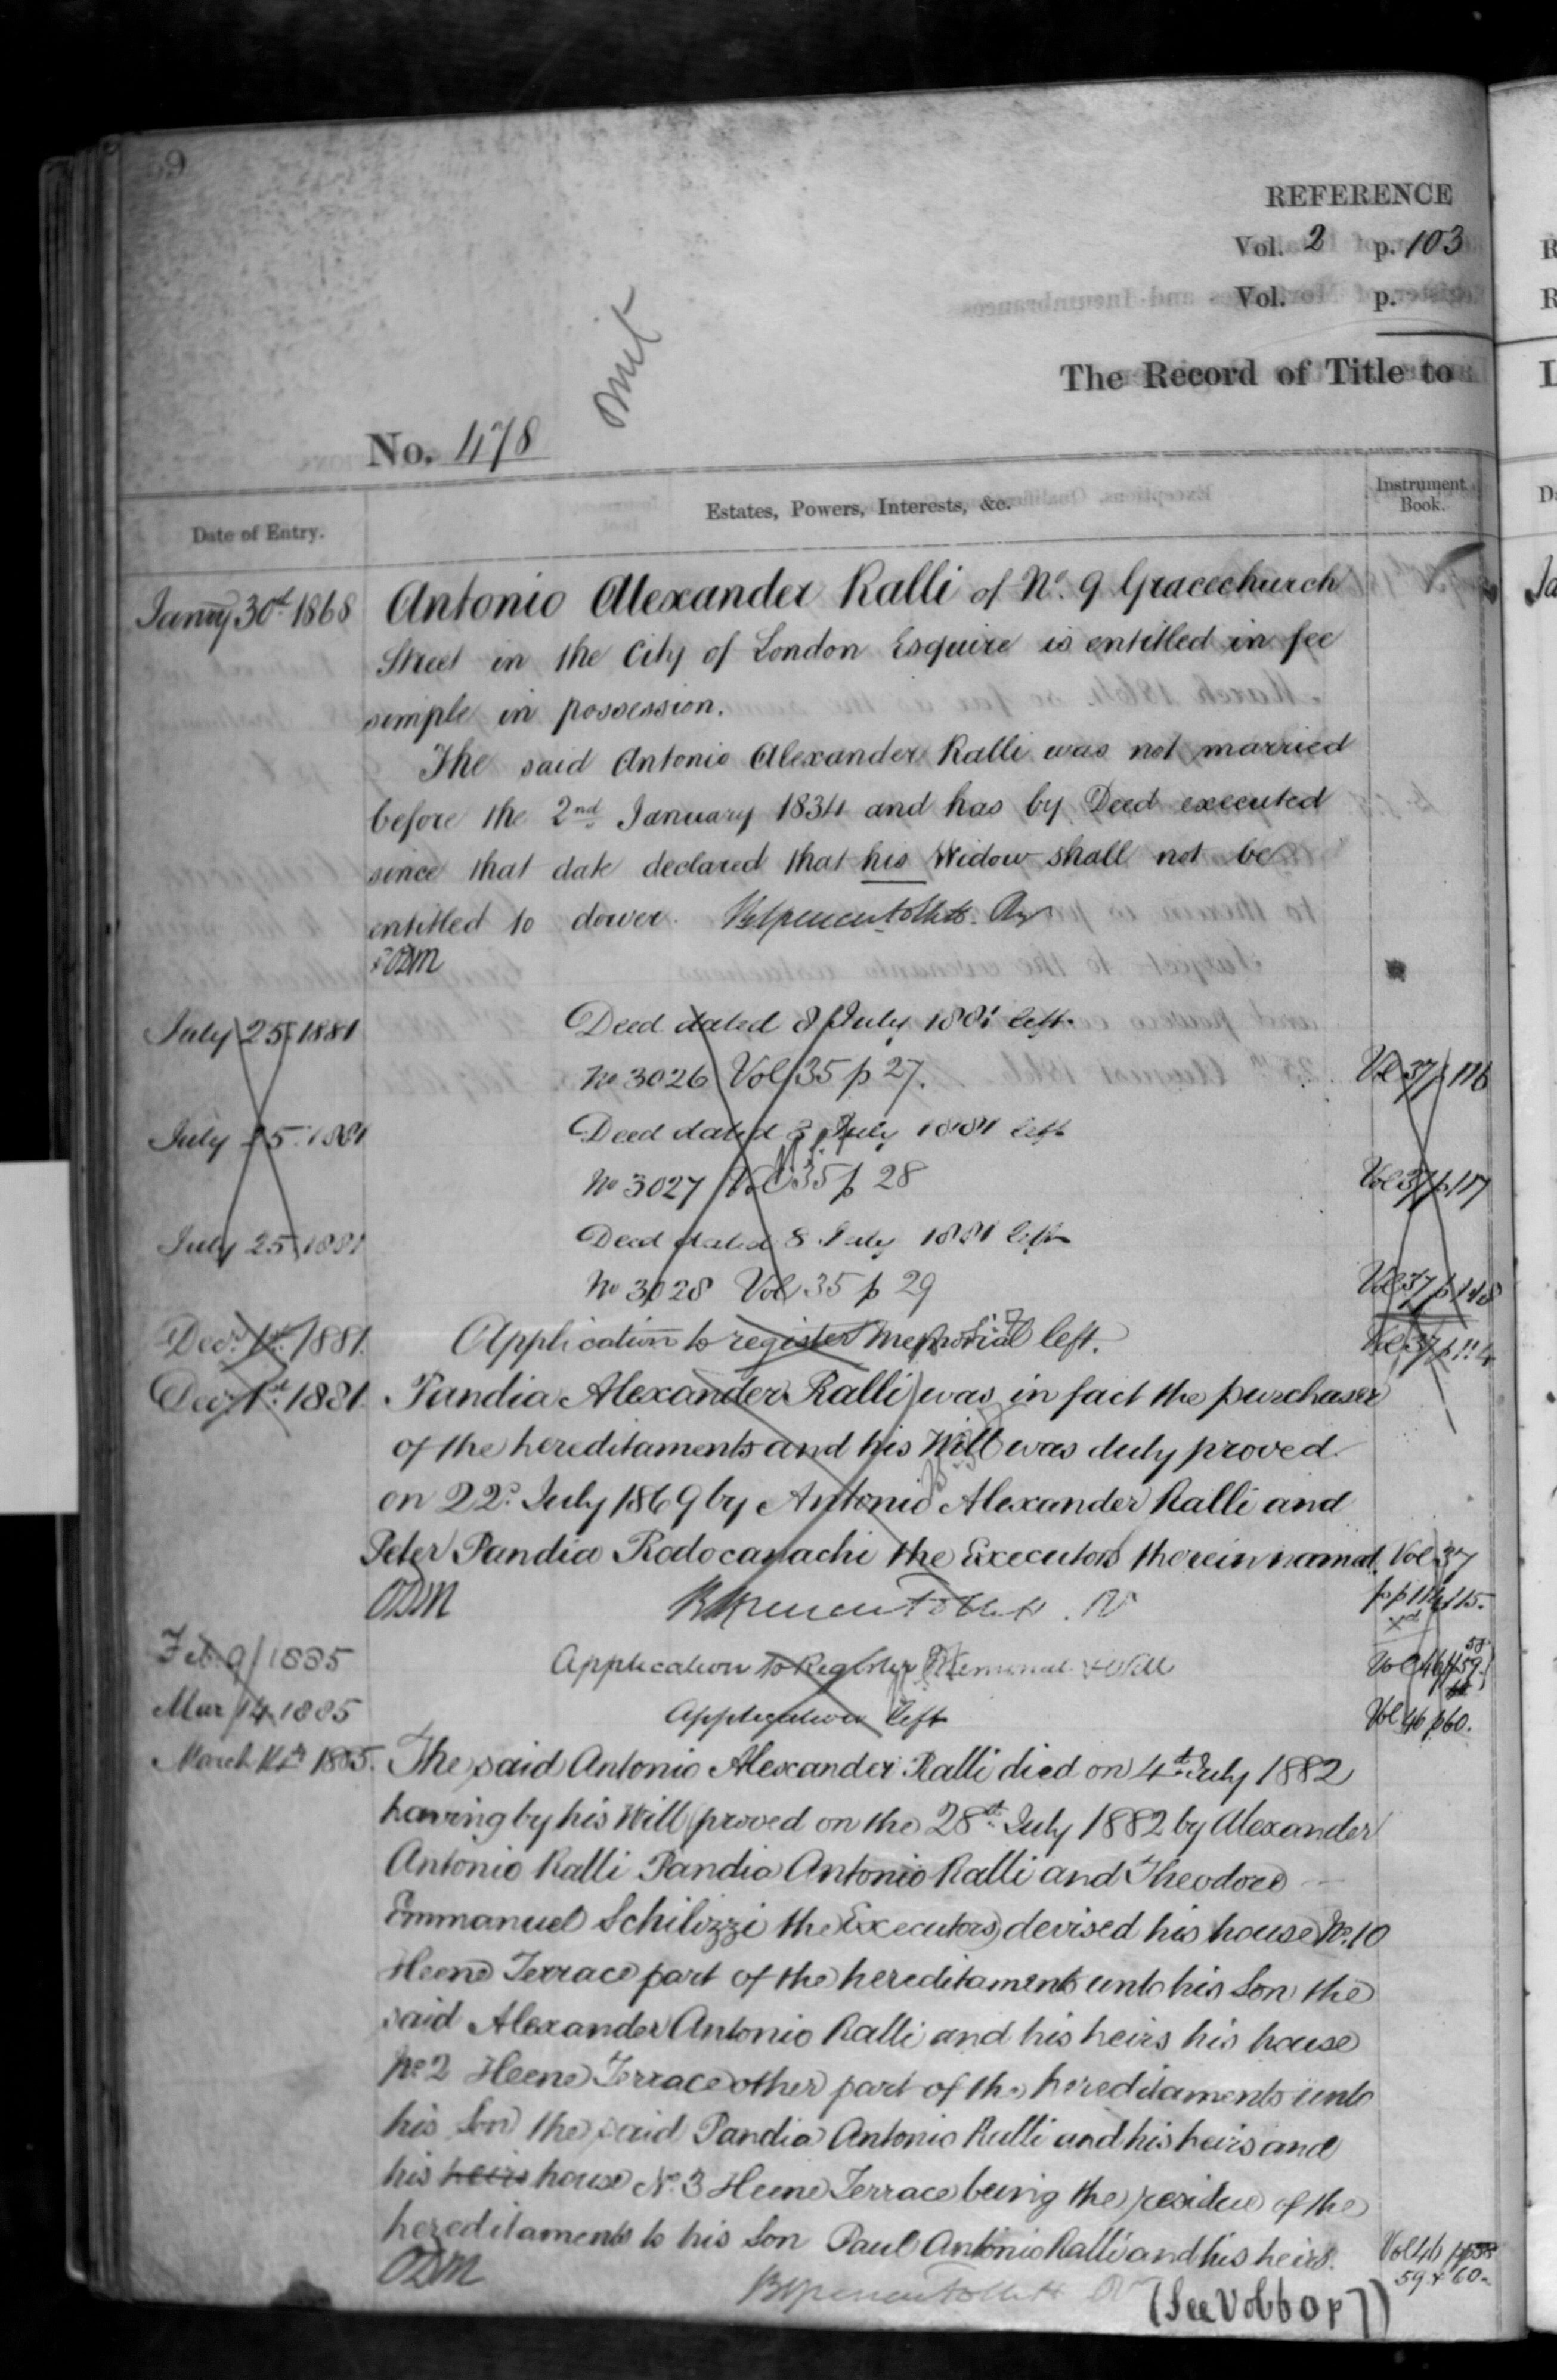 REFERENCE
Vol. 2 p. 103
Vol. p.
omit
The Record of Title to
No. 478
Date of Entry.
Estates, Powers, Interests, &c.
Instrument Book.
Jany 30th 1868 Antonio Alexander Ralli of No. 9 Gracechurch
Street in the City of London Esquire is entitled in fee
simple in possession.
The said Antonio Alexander Ralli was not married
before the 2nd January 1834 and has by Deed executed
since that date declared that his Widow shall not be
entitled to dower.
ODM
July 25 1881 Deed dated 8 July 1881 left
No 3026 Vol 35 p 27. Vol 37 p 116
July 25 1881 Deed dated 8 July 1881 left
No 3027 Vol 35 p 28 Vol 37 p 117
July 25 1881 Deed dated 8 July 1881 left
No 3028 Vol 35 p 29 Vol 37 p 118
Decr 1st 1881. Application to register Memorial left. Vol 37 p 114
Decr 1st 1881. Pandia Alexander Ralli was in fact the purchaser
of the hereditaments and his Will was duly proved
on 22d July 1869 by Antonio Alexander Ralli and
Peter Pandia Rodocanachi the Executors therein named. Vol 37
ODM pp 114 & 115.
Feb 9 1885 Application to Register Memorial & Will Vol 46 p 58 59
Mar 14 1885 Application left Vol 46 p 60.
March 14th 1885. The said Antonio Alexander Ralli died on 4th July 1882
having by his Will (proved on the 28th July 1882 by Alexander
Antonio Ralli Pandia Antonio Ralli and Theodore
Emmanuel Schilizzi the Executors) devised his house No. 10
Heene Terrace part of the hereditaments unto his Son the
said Alexander Antonio Ralli and his heirs his house
No 2 Heene Terrace other part of the hereditaments unto
his Son the said Pandia Antonio Ralli and his heirs and
his heirs house No. 3 Heene Terrace being the residue of the
hereditaments to his Son Paul Antonio Ralli and his heirs. Vol 46 p 58
ODM 59 & 60.
(See Vol 60 p 7)